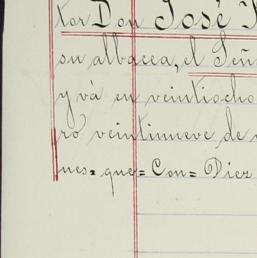 tor Don José
su albacea, el Señ
y vá en veintiocho
ro veintinueve de
nes=que=Con=Diez